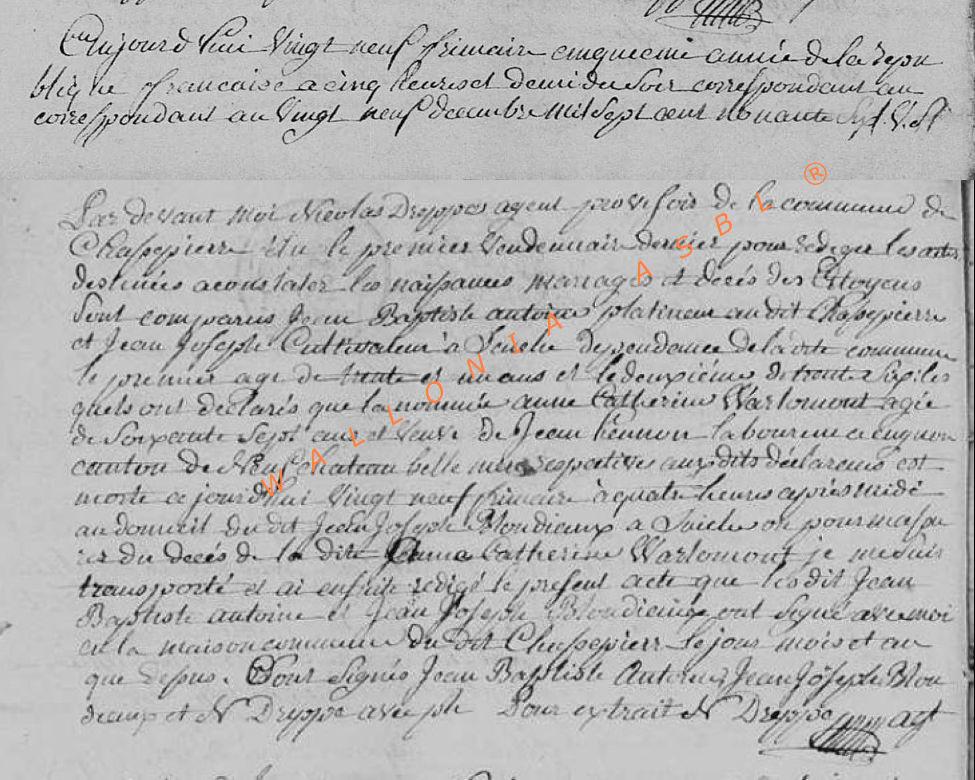 Aujourd'hui Vingt neuf frimaire cinquieme année de la repu
blique francaise a cinq heures et demi du Soir correspondant au
correspondant au Vingt neuf decembre mil sept cent nonante Sept. V. St
Par devant moi Nicolas Dreppes agent provisoir de la commune de
Chassepierre élu le premier Vendemiair dernier pour rediger les actes
destinées a constater les naissances mariages et décés des Citoyens
Sont comparus Jean Baptiste antoine platineur au dit Chassepierre
et Jean Joseph Cultivateur à dependance de la dite commune
le premier agé de trente et un ans et le deuxieme de trente Six les
quels ont declarés que la nommée anne Catherine Warlomont agée
de Soixante Sept ans et Veuve de Jean hennon laboureur a
canton de Neufchateau belle mere respective aux dits déclarents est
morte ce jourd'hui Vingt neuf frimaire à quatre heures après midi
au domicil du dit Jean Joseph Blondieaux a or pour massu
rer du decés de la dite Anna Catherine Warlomont je me suis
transporté et ai ensuite redigé le present acte que les dit Jean
Baptiste antoine et Jean Joseph Blondieaux ont Signé avec moi
en la maison commune du dit Chassepierre le jour mois et an
que dessus. Sont Signés Jean Baptiste Antoine, Jean Joseph Blon
dieaux et N Dreppe avec ph Pour extrait N Dreppe agt
WALLONIA ASBL ®